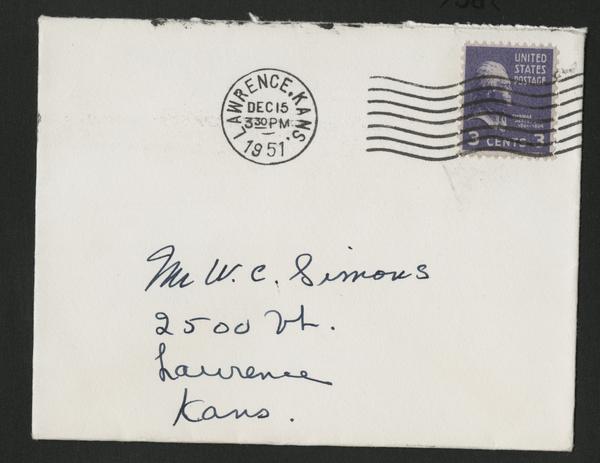 LAWRENCE, KANS.
DEC 15
3 30 PM
1951
UNITED
STATES
POSTAGE
3 CENTS 3
Mr W. C. Simons
2500 Vt.
Lawrence
Kans.